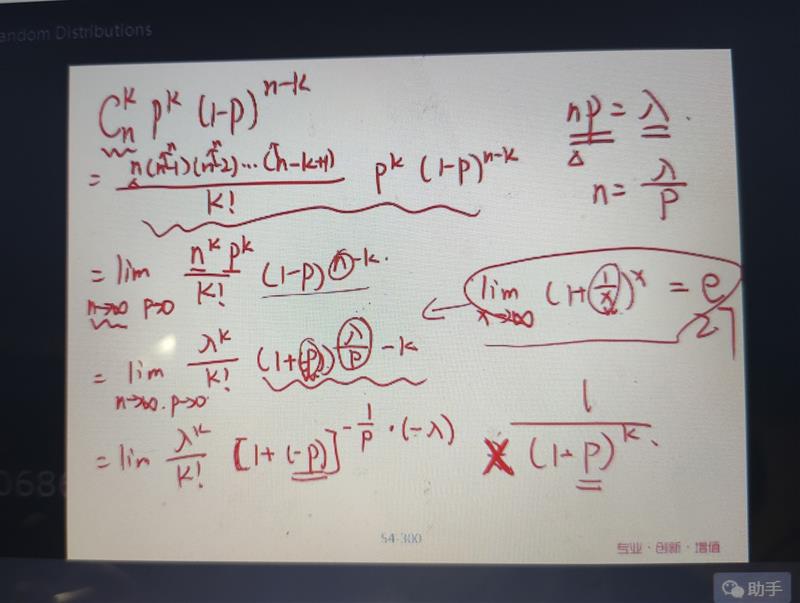 andom Distributions
C_n^k p^k (1-p)^{n-k}
np = λ.
= n(n-1)(n-2)...(n-k+1) / k! p^k (1-p)^{n-k}
n = λ/p
= lim n→∞ p→0 n^k p^k / k! (1-p)^{n-k}.
lim x→∞ (1+1/x)^x = e
2.7
= lim n→∞.p→0 λ^k / k! (1+(-p))^{λ/p - k}
= lim λ^k / k! [1+(-p)]^{-1/p · (-λ)} × 1 / (1-p)^k.
0686
54-300
专业·创新·增值
助手